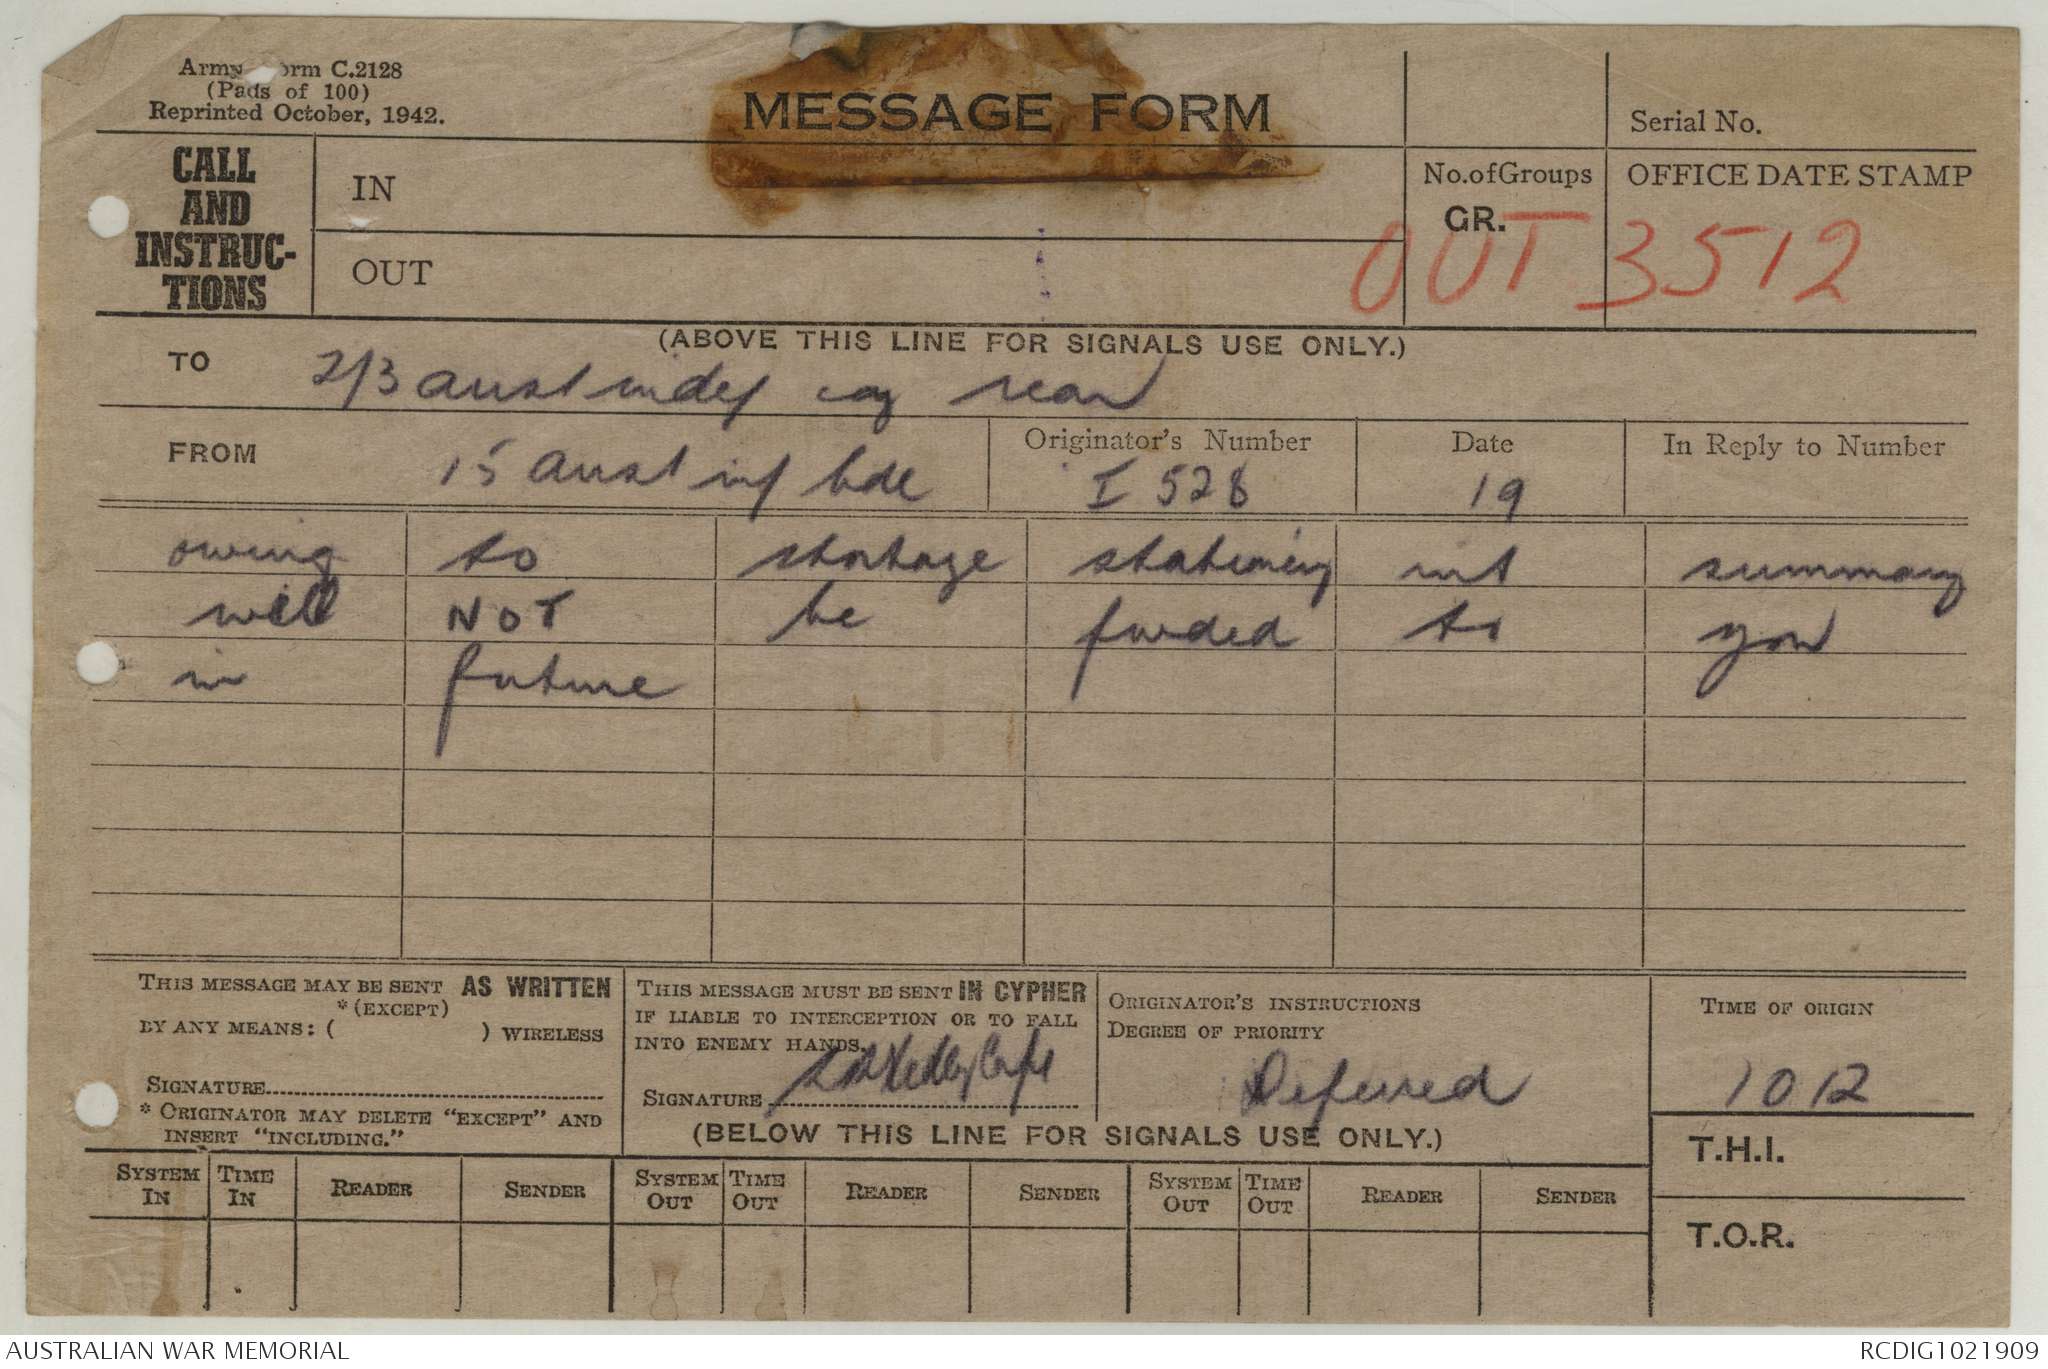 Army Form C.2128
(Pads of 100)
Reprinted October, 1942.
MESSAGE FORM
Serial No.
CALL
AND
INSTRUC-
TIONS
IN
OUT
No.of Groups
GR.
OFFICE DATE STAMP
OUT 3512
(ABOVE THIS LINE FOR SIGNALS USE ONLY.)
TO 2/3 aust indep coy rear
FROM 15 aust inf bde
Originator's Number
I 528
Date
19
In Reply to Number
owing to shortage stationery int summary
will NOT be fwded to you
in future
THIS MESSAGE MAY BE SENT AS WRITTEN
*(EXCEPT)
BY ANY MEANS: ( ) WIRELESS
SIGNATURE
* ORIGINATOR MAY DELETE "EXCEPT" AND
INSERT "INCLUDING."
THIS MESSAGE MUST BE SENT IN CYPHER
IF LIABLE TO INTERCEPTION OR TO FALL
INTO ENEMY HANDS.
SIGNATURE
ORIGINATOR'S INSTRUCTIONS
DEGREE OF PRIORITY
Deferred
TIME OF ORIGIN
1012
(BELOW THIS LINE FOR SIGNALS USE ONLY.)
T.H.I.
T.O.R.
SYSTEM IN TIME IN READER SENDER SYSTEM OUT TIME OUT READER SENDER SYSTEM OUT TIME OUT READER SENDER
AUSTRALIAN WAR MEMORIAL
RCDIG1021909